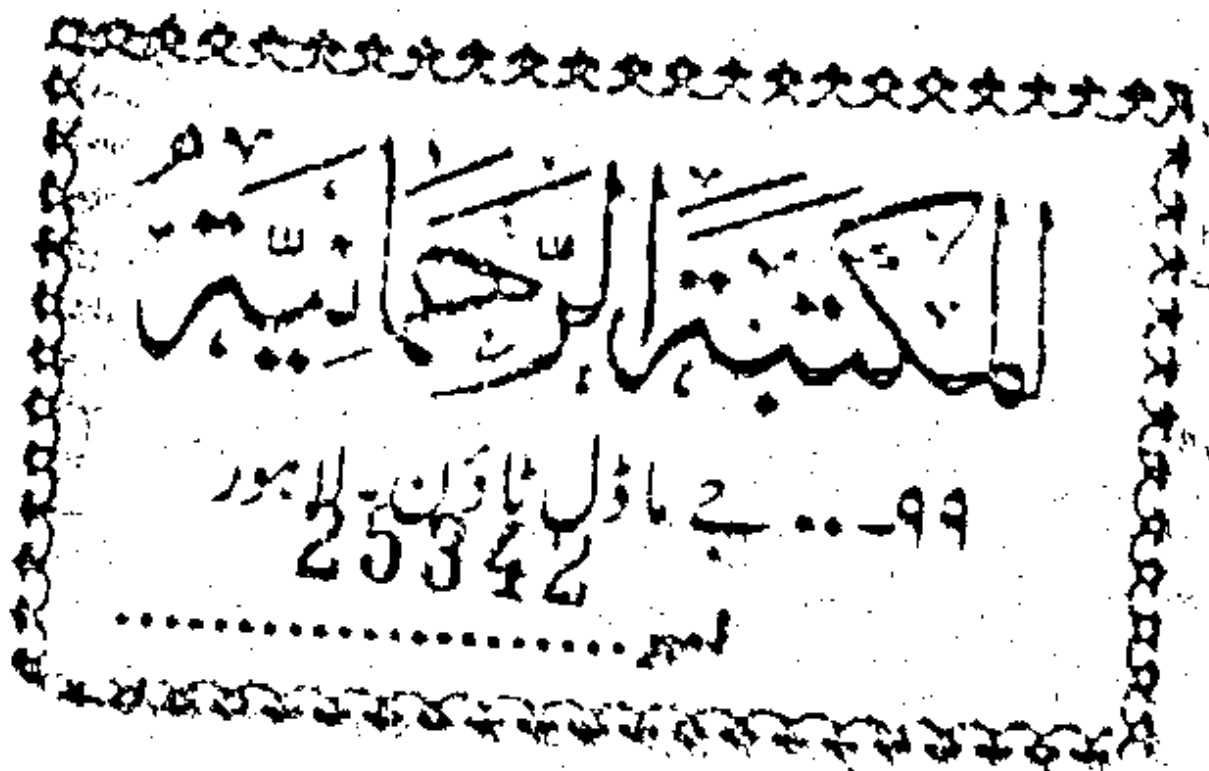 المكتبة الرحمانية
۹۹ـ۔۔ جے ماڈل ٹاؤن۔ لاہور
25342
نمبر....................